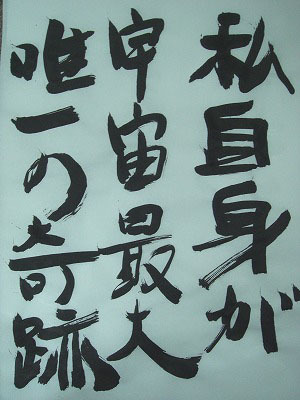 私自身が
宇宙最大
唯一の奇跡